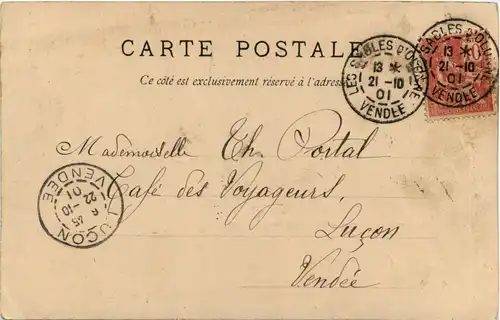 CARTE POSTALE
Ce côté est exclusivement réservé à l'adresse
LES SABLES D'OLONNE
13 *
21 -10
01
VENDÉE
SABLES D'OLONNE
13 *
21 -10
01
VENDÉE
Mademoiselle Th. Portal
Café des Voyageurs,
Luçon
Vendée
LUÇON
6 45
22 -10
01
VENDÉE